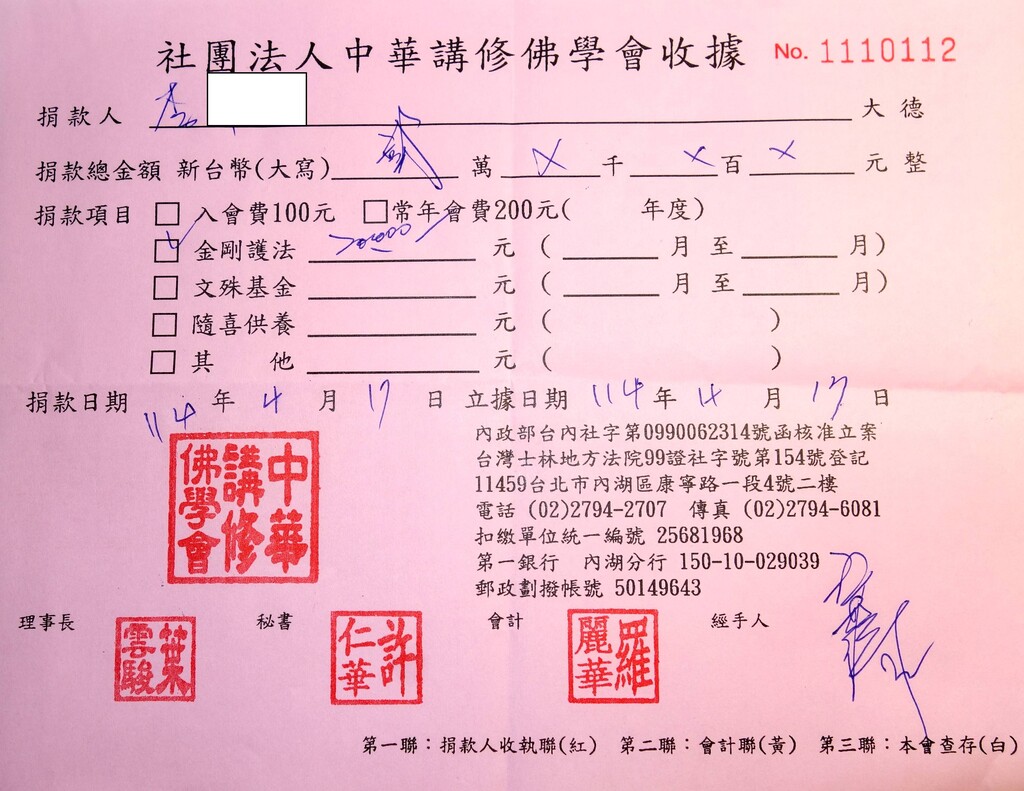 社團法人中華講修佛學會收據 No. 1110112
捐款人 李 大德
捐款總金額 新台幣(大寫) 貳 萬 X 千 X 百 X 元整
捐款項目 □ 入會費100元 □常年會費200元( 年度)
☑ 金剛護法 元 ( 月 至 月)
□ 文殊基金 元 ( 月 至 月)
□ 隨喜供養 元 ( )
□ 其 他 元 ( )
捐款日期 114 年 4 月 17 日 立據日期 114 年 4 月 17 日
中華講修佛學會
內政部台內社字第0990062314號函核准立案
台灣士林地方法院99證社字號第154號登記
11459台北市內湖區康寧路一段4號二樓
電話 (02)2794-2707 傳真 (02)2794-6081
扣繳單位統一編號 25681968
第一銀行 內湖分行 150-10-029039
郵政劃撥帳號 50149643
理事長 葉雲駿 秘書 許仁華 會計 羅麗華 經手人
第一聯：捐款人收執聯(紅) 第二聯：會計聯(黃) 第三聯：本會查存(白)